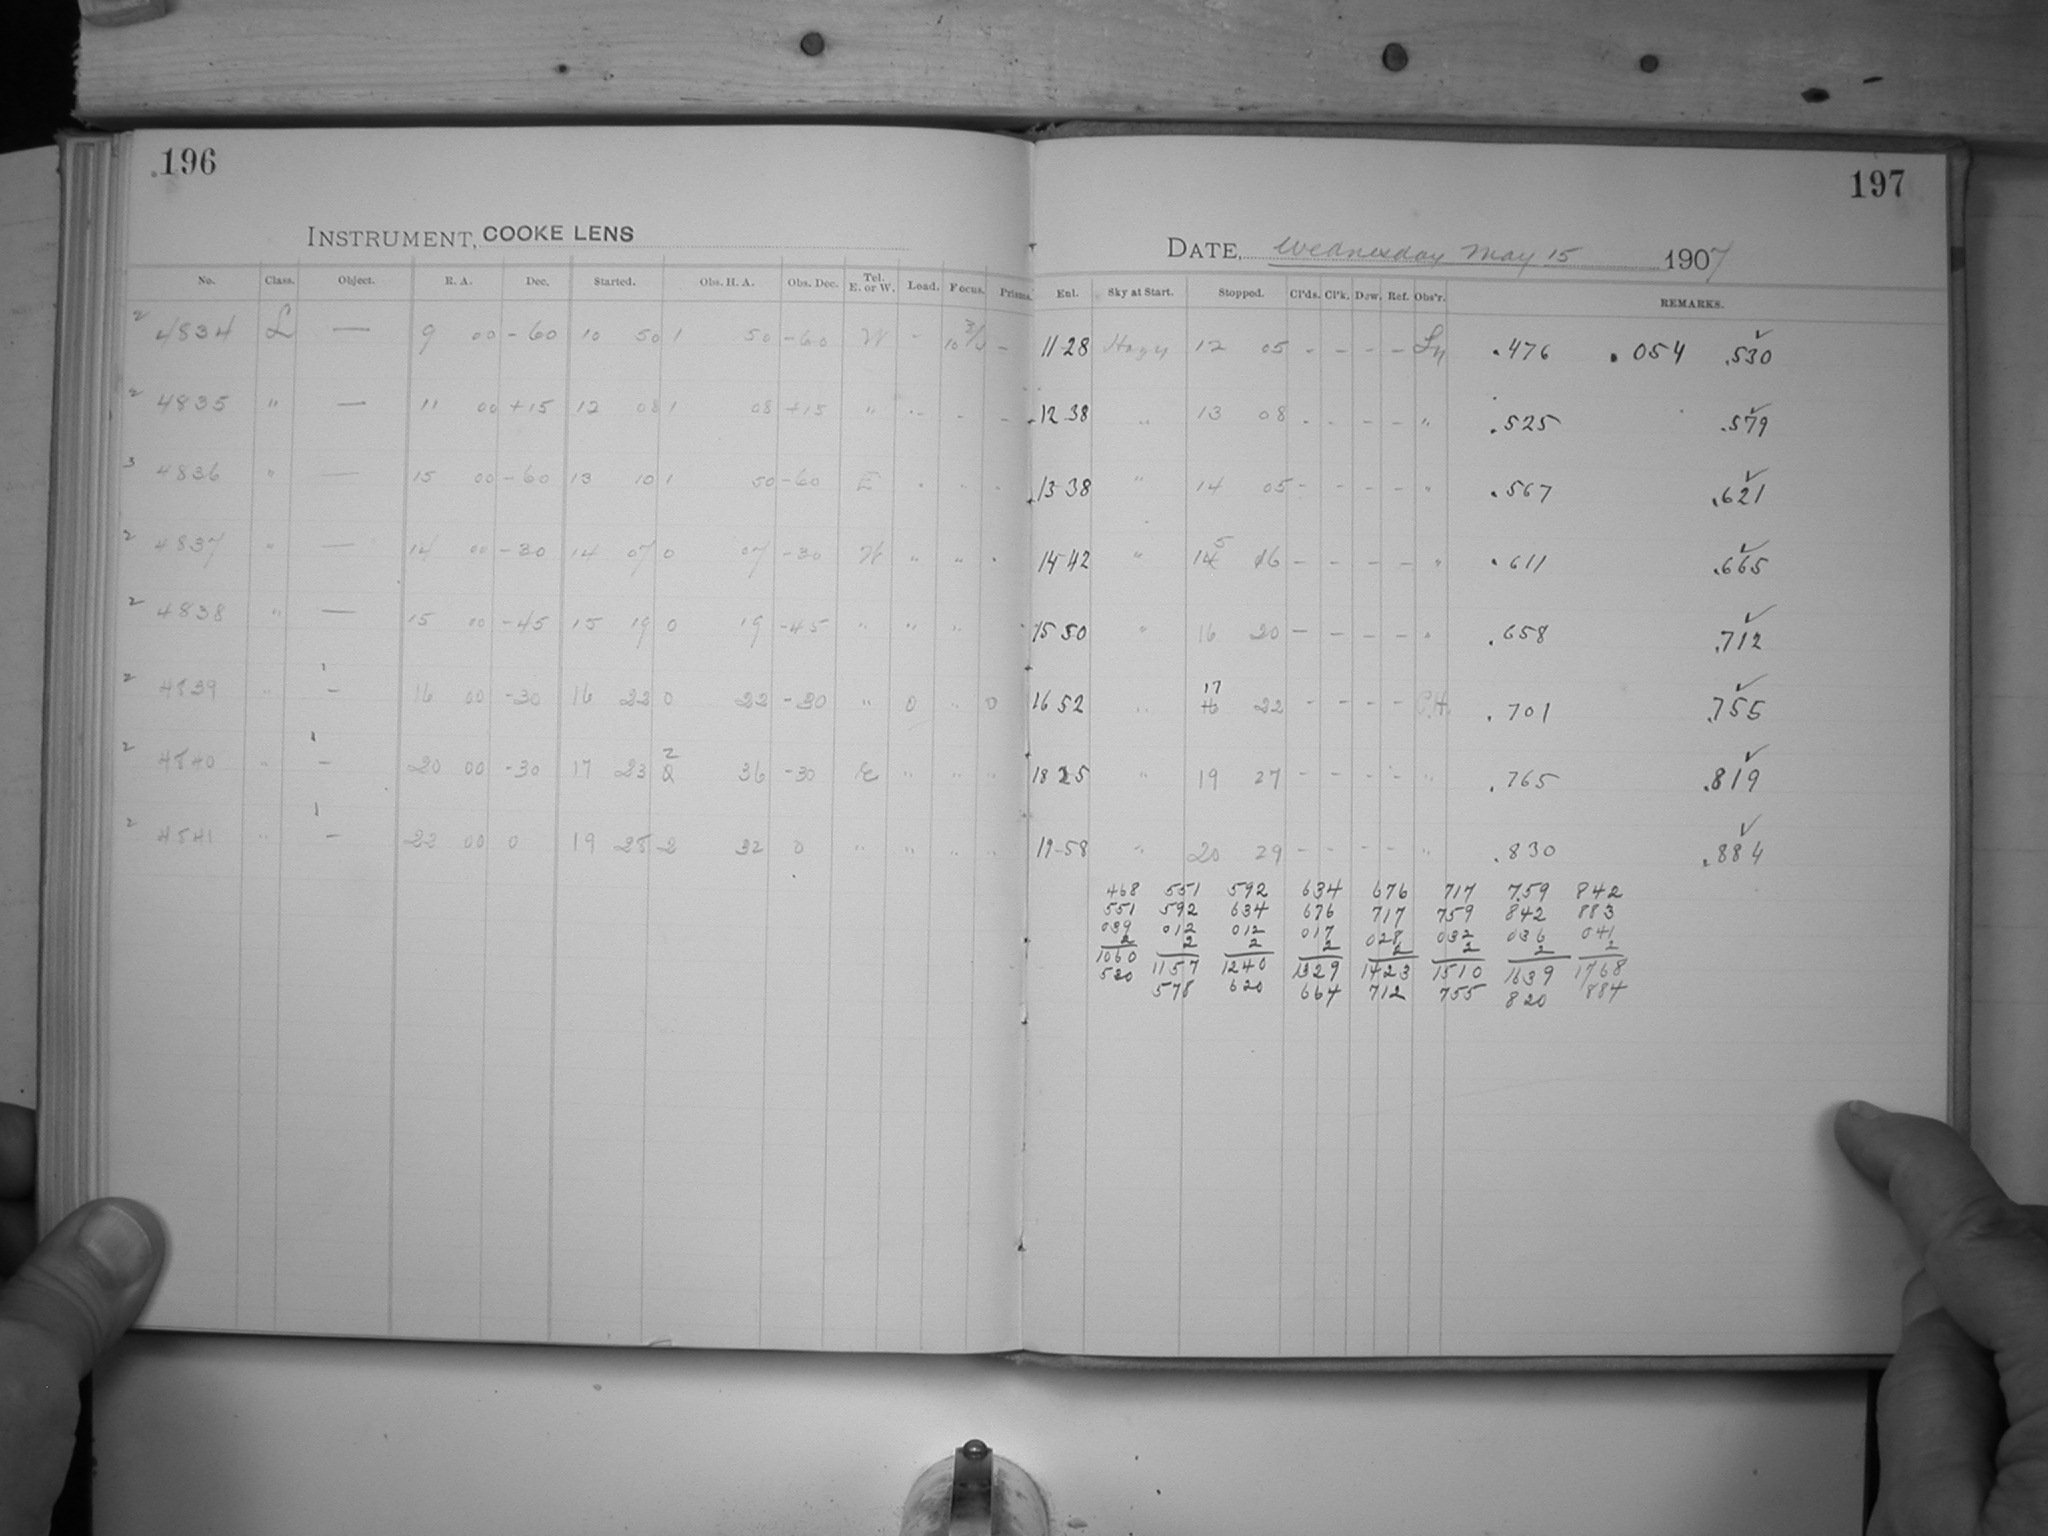 196
INSTRUMENT, COOKE LENS
No. Class. Object. R. A. Dec. Started. Obs. H. A. Obs. Dec. Tel. E. or W. Load. Focus. Prisms.
2 4834 L — 9 00 -60 10 50 1 50 -60 W - 10 3/ -
2 4835 " — 11 00 +15 12 08 1 08 +15 " - - -
3 4836 " — 15 00 -60 13 10 1 50 -60 E " " "
2 4837 " — 14 00 -30 14 07 0 07 -30 W " " "
2 4838 " — 15 00 -45 15 19 0 19 -45 " " " "
2 4839 " — 16 00 -30 16 22 0 22 -30 " 0 " 0
2 4840 " — 20 00 -30 17 23 2 36 -30 E " " "
2 4841 " — 22 00 0 19 28 2 32 0 " " " "
197
DATE, Wednesday May 15 1907
Ent. Sky at Start. Stopped. Cl'ds. Cl'k. Dew. Ref. Obs'r. REMARKS.
11 28 Hazy 12 05 - - - - .476 .054 .530 ✓
12 38 " 13 08 - - - - " .525 .579 ✓
13 38 " 14 05 - - - - " .567 .621 ✓
14 42 " 15 16 - - - - " .611 .665 ✓
15 50 " 16 20 - - - - " .658 .712 ✓
16 52 " 17 22 - - - - .701 .755 ✓
18 25 " 19 27 - - - - " .765 .819 ✓
19-58 " 20 29 - - - - " .830 .884 ✓
468 551 592 634 676 717 759 842
551 592 634 676 717 759 842 883
039 012 012 017 028 032 036 041
2 2 2 2 2 2 2 2
1060 1157 1240 1329 1423 1510 1639 1768
530 578 620 664 712 755 820 884